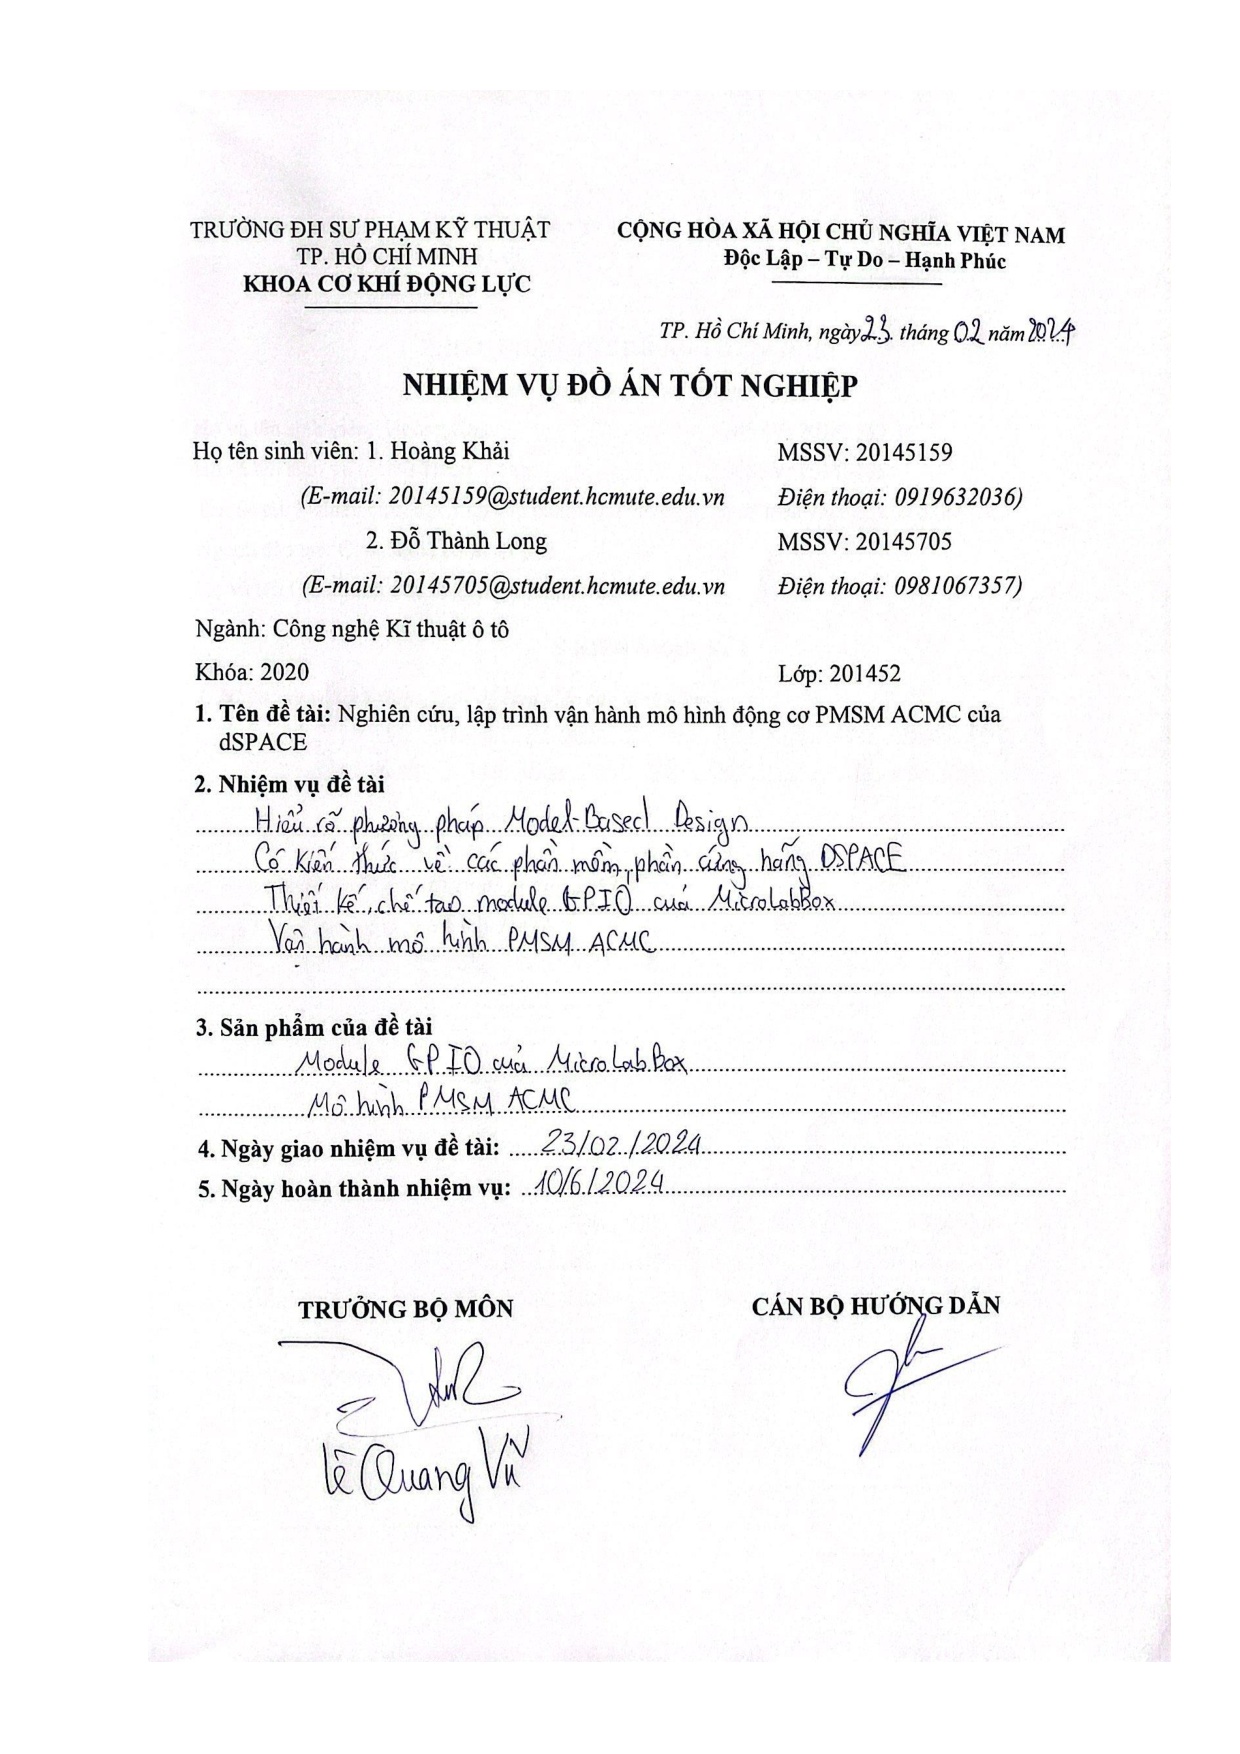 TRƯỜNG ĐH SƯ PHẠM KỸ THUẬT
TP. HỒ CHÍ MINH
KHOA CƠ KHÍ ĐỘNG LỰC
CỘNG HÒA XÃ HỘI CHỦ NGHĨA VIỆT NAM
Độc Lập – Tự Do – Hạnh Phúc
TP. Hồ Chí Minh, ngày 23 tháng 02 năm 2024
NHIỆM VỤ ĐỒ ÁN TỐT NGHIỆP
Họ tên sinh viên: 1. Hoàng Khải MSSV: 20145159
(E-mail: 20145159@student.hcmute.edu.vn Điện thoại: 0919632036)
2. Đỗ Thành Long MSSV: 20145705
(E-mail: 20145705@student.hcmute.edu.vn Điện thoại: 0981067357)
Ngành: Công nghệ Kĩ thuật ô tô
Khóa: 2020 Lớp: 201452
1. Tên đề tài: Nghiên cứu, lập trình vận hành mô hình động cơ PMSM ACMC của
dSPACE
2. Nhiệm vụ đề tài
Hiểu rõ phương pháp Model-Based Design
Có kiến thức về các phần mềm, phần cứng hãng DSPACE
Thiết kế, chế tạo module GPIO của MicroLabBox
Vận hành mô hình PMSM ACMC
3. Sản phẩm của đề tài
Module GPIO của MicroLabBox
Mô hình PMSM ACMC
4. Ngày giao nhiệm vụ đề tài: 23/02/2024
5. Ngày hoàn thành nhiệm vụ: 10/6/2024
TRƯỞNG BỘ MÔN CÁN BỘ HƯỚNG DẪN
Lê Quang Vũ